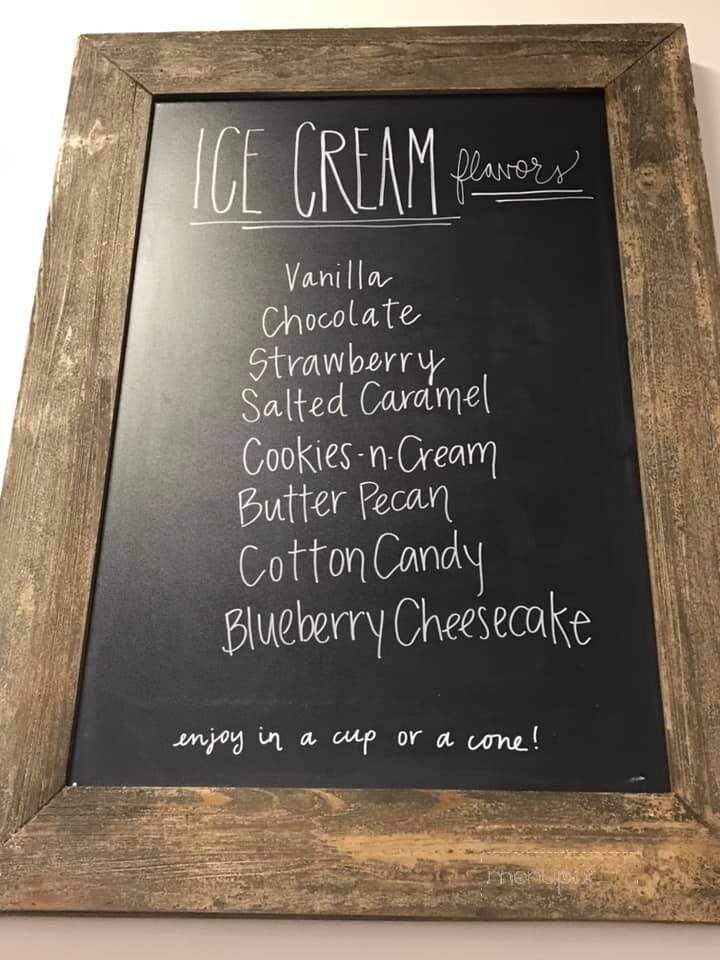 ICE CREAM flavors
Vanilla
Chocolate
Strawberry
Salted Caramel
Cookies-n-Cream
Butter Pecan
Cotton Candy
Blueberry Cheesecake
enjoy in a cup or a cone!
menupix